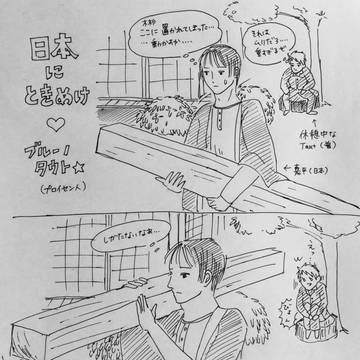 日本
に
ときめけ
♡
ブルーノ
タウト☆
(プロイセン人)
木材
ここに 置かれてしまった…
動かすか….
それは
ムリだろう…
重すぎるぜ
↑
休憩中な
Taut
(日本)
しかたないなぁ…
えっ